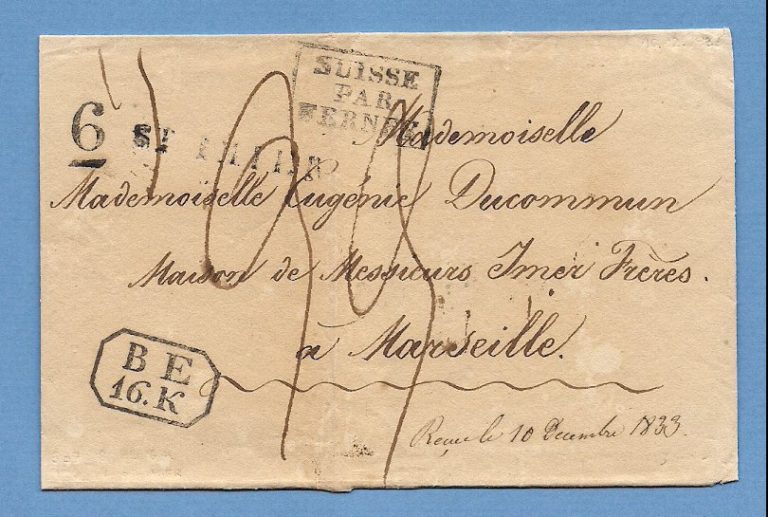 SUISSE
PAR
FERNEX
6
ST
Mademoiselle
Mademoiselle Eugénie Ducommun
Maison de Messieurs Imer Frères.
à Marseille.
B E
16.K
Reçue le 10 Decembre 1833.